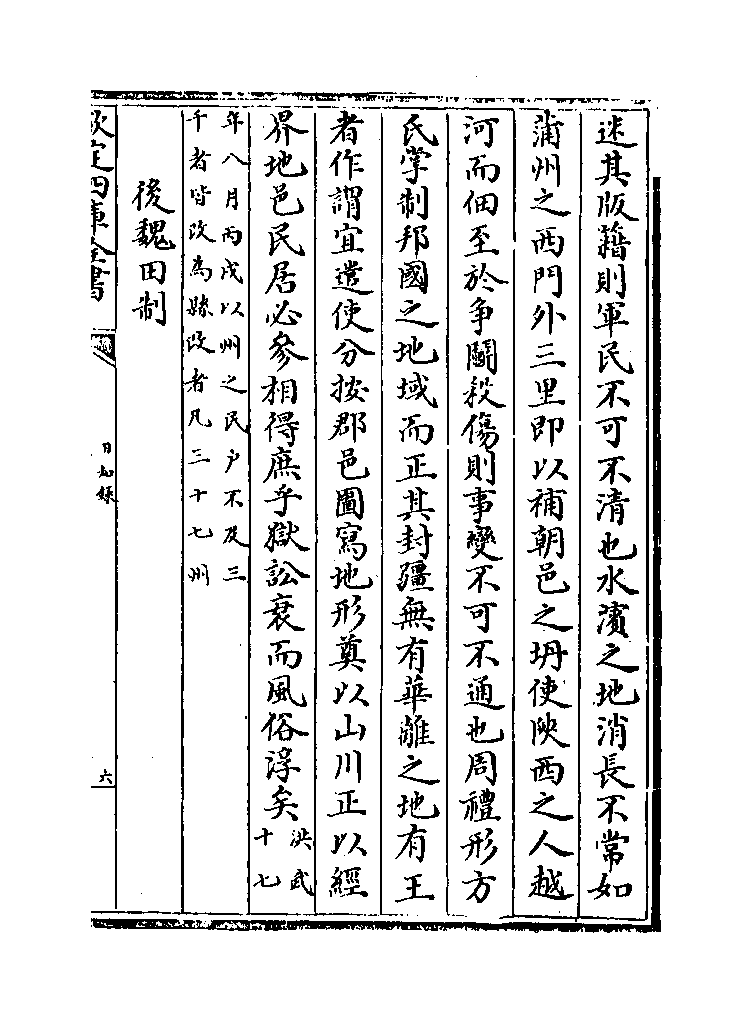 迷其版籍則軍民不可不清也水濱之地消長不常如
蒲州之西門外三里即以補朝邑之坍使陜西之人越
河而佃至於争鬭殺傷則事變不可不通也周禮形方
氏掌制邦國之地域而正其封疆無有華離之地有王
者作謂宜遣使分按郡邑圖寫地形奠以山川正以經
界地邑民居必參相得庶乎獄訟衰而風俗淳矣洪武十七
年八月丙戌以州之民户不及三
千者皆改為縣改者凡三十七州
後魏田制
欽定四庫全書
日知錄
六